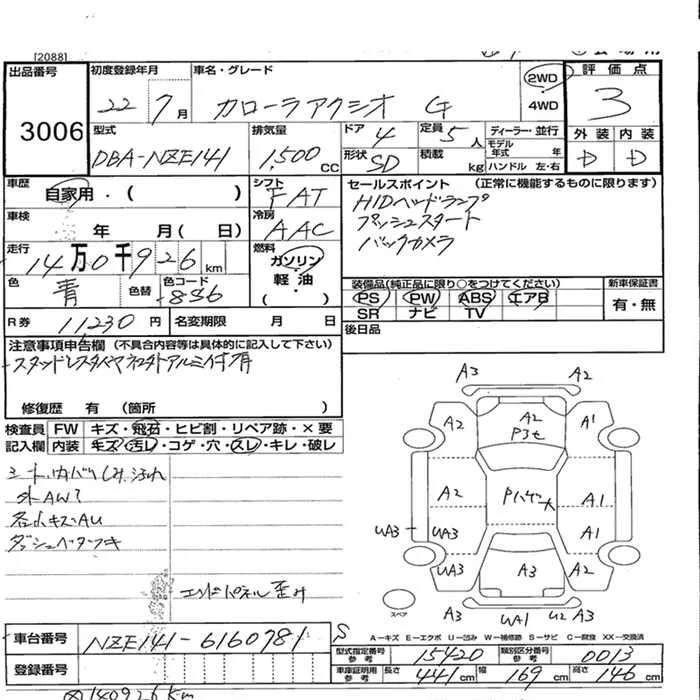 [2088]
出品番号 3006
初度登録年月 22 7月
車名・グレード カローラアクシオ G
2WD
4WD
評価点 3
型式 DBA-NZE141
排気量 1,500 CC
ドア 4
定員 5人
形状 SD
積載 kg
ディーラー・並行
モデル年式 年
ハンドル 左・右
外装 内装
D D
車歴 自家用・( )
シフト FAT
車検 年 月( 日)
冷房 AAC
走行 14万0千926km
燃料 ガソリン・軽油・( )
色 青 色替
色コード 8S6
R券 11,230円
名変期限 月 日
セールスポイント (正常に機能するものに限ります)
HIDヘッドランプ
プッシュスタート
バックカメラ
装備品(純正品に限り○をつけてください)
PS PW ABS エアB
SR ナビ TV
新車保証書 有・無
後日品
注意事項申告欄(不具合内容等は具体的に記入して下さい)
スタッドレスタイヤ
アルミ付有
修復歴 有(箇所 )
検査員記入欄
FW キズ・飛石・ヒビ割・リペア跡・×要
内装 キズ・汚レ・コゲ・穴・スレ・キレ・破レ
シート、内バリしみ汚れ
外AW?
各小キズAU
エンドパネル歪み
A3 A2
A2 A2 A1
P3セ
A2 A1
UA3 UA3 A1
UA3 A3 A2
スペア
A3 UA1 U2 A3
車台番号 NZE141-6160981
S
A-キズ E-エクボ U-凹み W-補修跡 S-サビ C-腐蝕 XX-交換済
登録番号
型式指定番号参考 15420
類別区分番号参考 0013
車庫証明用参考 長さ 441cm 幅 169cm 高さ 146cm
140926km